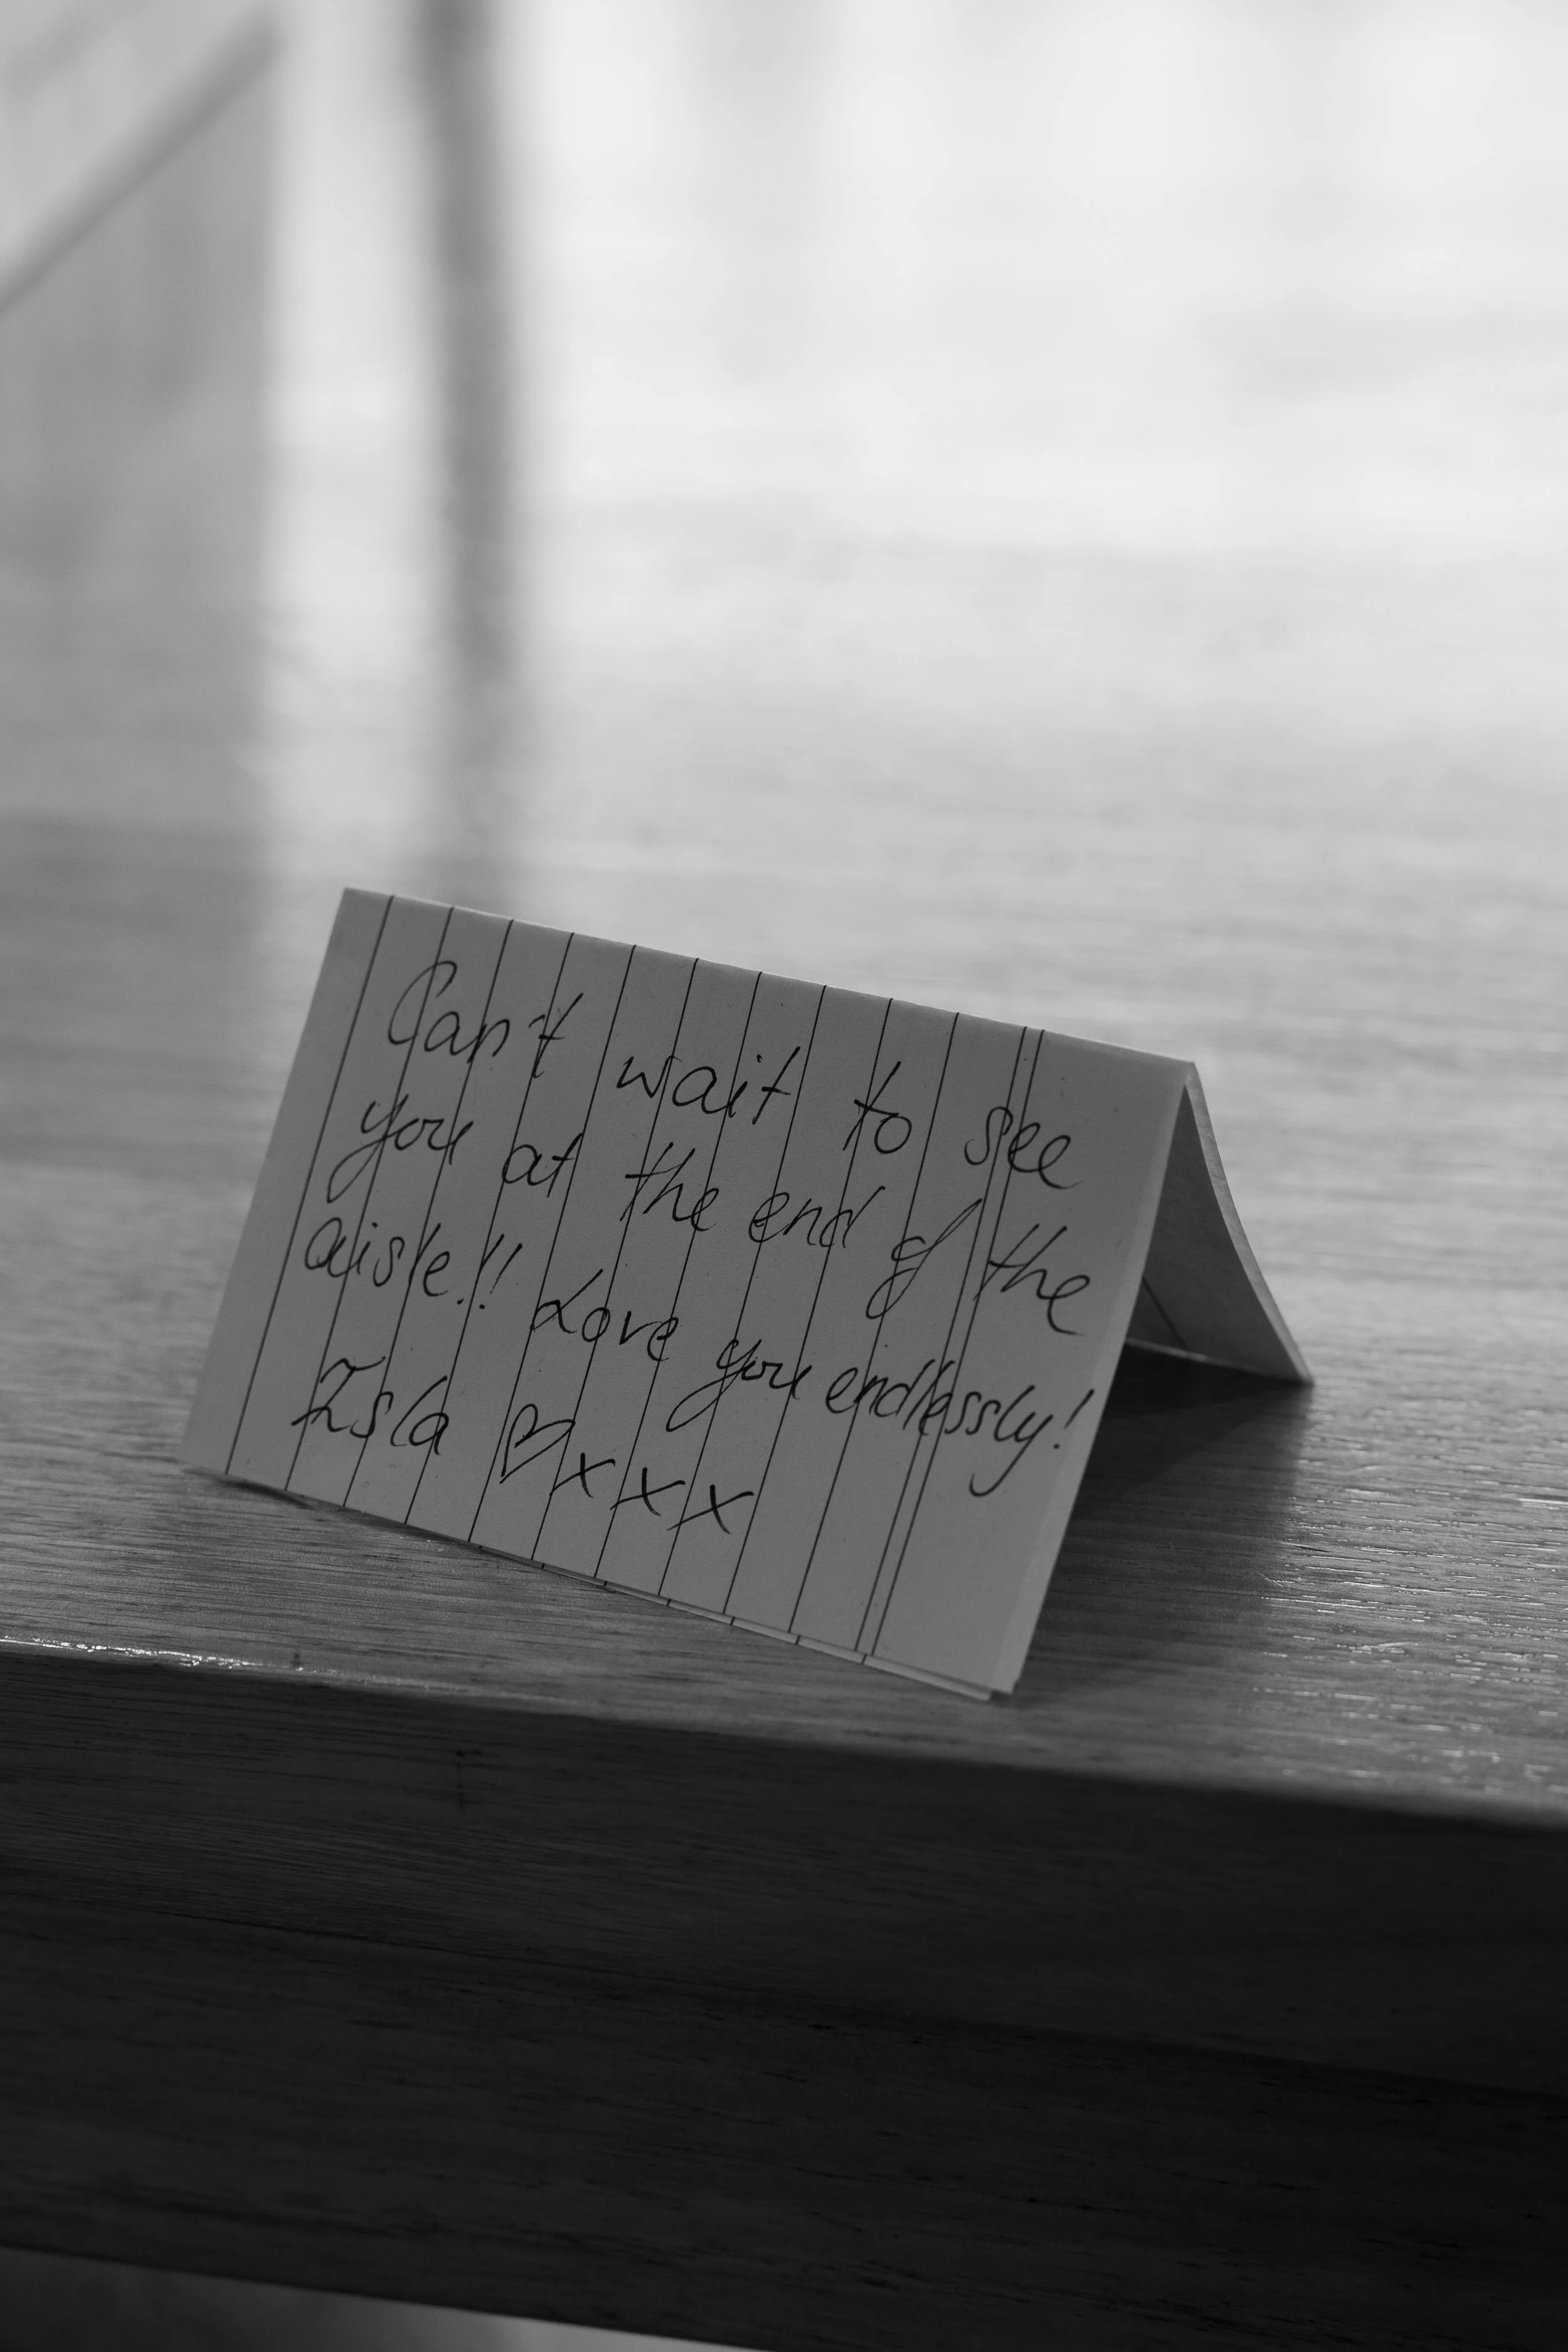 Can't wait to see
you at the end of the
aisle!! Love you endlessly!
Isla ♡xxx